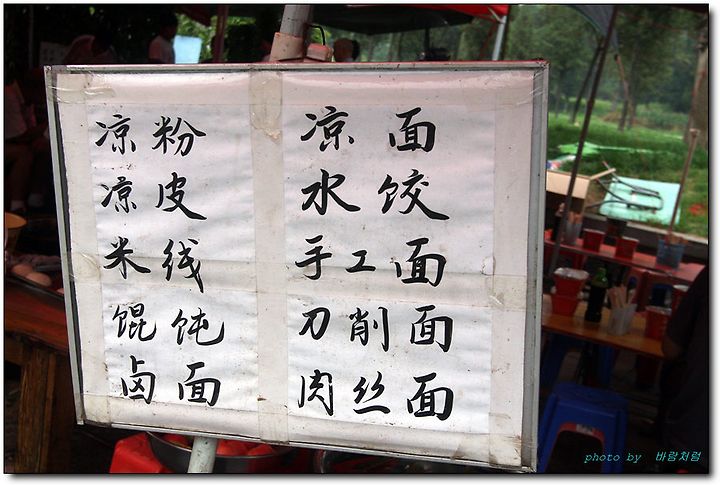 凉粉
凉皮
米线
馄饨
卤面
凉面
水饺
手工面
刀削面
肉丝面
photo by 바람처럼